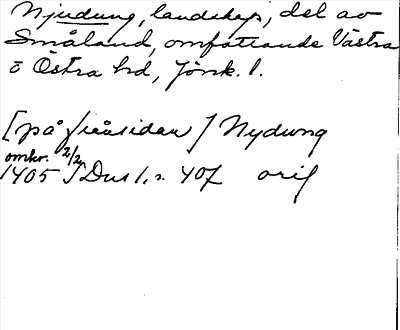 Njudung, landskap, del av
Småland, omfattande Västra
o Östra hd, Jönk. l.
[på frånsidan] Nydwng
omkr. 2/2
1405 SDns 1, s. 407 orig